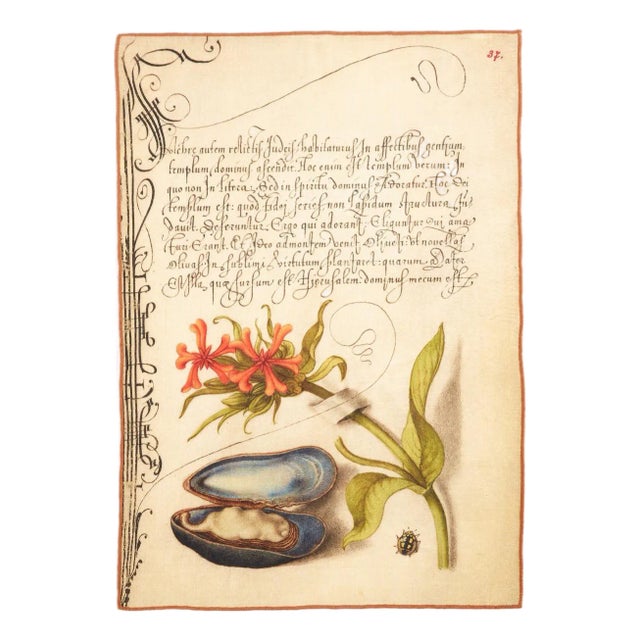 37.
autem relictis Judeis habitaturus In affectibus gentium
templum dominus ascendit. Hoc enim est templum verum: In
quo non In litera, Sed in Spiritu dominus Adoratur. Hoc Dei
templum est: quod fidei Series non Lapidum structura fun
dauit. Deseruntur Ergo qui adorant, Eliguntur qui ama
turi Erant. Et Ideo ad montem venit Oliueti: vt nouellas
Oliuas In sublimi virtutum plantaret: quarum Mater
Est Illa, quæ sursum est Hierusalem: dominus mecum est